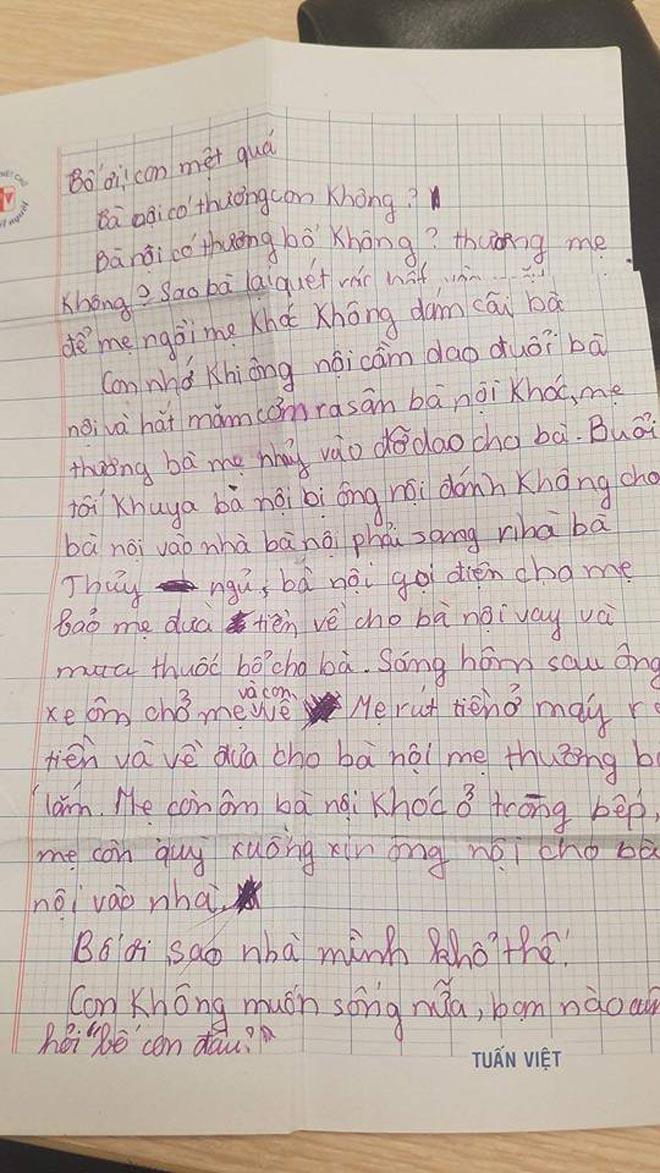 Bố ơi! con mệt quá
Bà nội có thương con không?
Bà nội có thương bố không? thương mẹ
không? sao bà lại quét rác hất
để mẹ ngồi mẹ khóc không dám cãi bà
Con nhớ khi ông nội cầm dao đuổi bà
nội và hất mâm cơm ra sân bà nội khóc, mẹ
thương bà mẹ nhảy vào đỡ dao cho bà. Buổi
tối khuya bà nội bị ông nội đánh không cho
bà nội vào nhà bà nội phải sang nhà bà
Thủy ngủ, bà nội gọi điện cho mẹ
bảo mẹ đưa tiền về cho bà nội vay và
mua thuốc bổ cho bà. Sáng hôm sau ông
xe ôm chở mẹ và con về Mẹ rút tiền ở máy r
tiền và về đưa cho bà nội mẹ thương b
lắm. Mẹ còn ôm bà nội khóc ở trong bếp,
mẹ còn quỳ xuống xin ông nội cho bà
nội vào nhà.
Bố ơi sao nhà mình khổ thế!
Con không muốn sống nữa, bạn nào cũn
hỏi "bố con đâu?"
TUẤN VIỆT